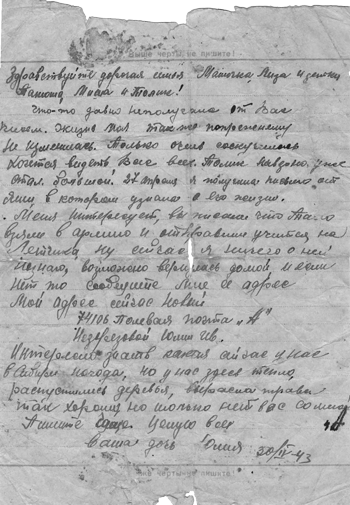 Выше черты не пишите!
Здравствуйте дорогая семья Мамочка Лиза и
Муся и Толик!
Что-то давно неполучаю от Вас
писем. Жизнь моя также попрежнему
не изменилась. Только очень соскучилась
хочется видеть Вас всех. Толик наверно уже
стал большой. 27 апреля я получила письмо от
в котором узнала о его жизни.
Меня интересует, вы писали что
взяли в армию и отправили учится на
Летчика, ну сейчас я ничего о ней
незнаю, возможно вернулась домой и если
нет то сообщите мне ее адрес
Мой адрес сейчас новый
74196 Полевая почта „А"
Юлии Ив.
Интересно знать какая сейчас у нас
в Сибири погода, но у нас здесь тепло,
распустились деревья, выросла трава
так хорошо, но только нет вас со мной
Пишите Целую всех
Ваша дочь Юлия 30/IV-43
Ниже черты не пишите!